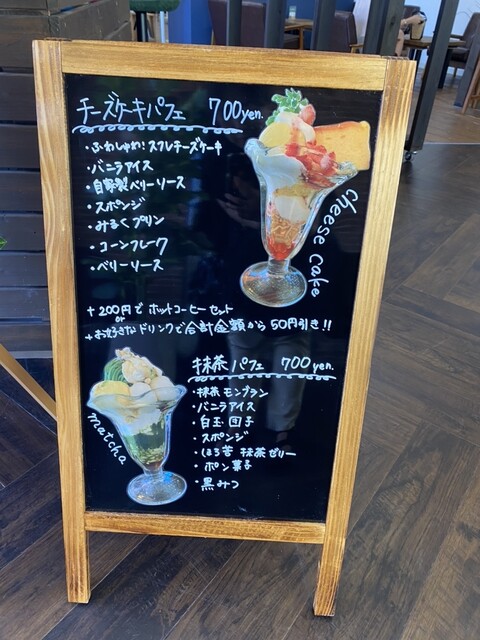 チーズケーキパフェ 700yen.
・ふわしゅわ!スフレチーズケーキ
・バニラアイス
・自家製ベリーソース
・スポンジ
・みるくプリン
・コーンフレーク
・ベリーソース
cheese cake
+200円でホットコーヒーセット
or
+お好きなドリンクで合計金額から50円引き!!
抹茶パフェ 700yen.
・抹茶モンブラン
・バニラアイス
・白玉団子
・スポンジ
・ほろ苦抹茶ゼリー
・ポン菓子
・黒みつ
matcha